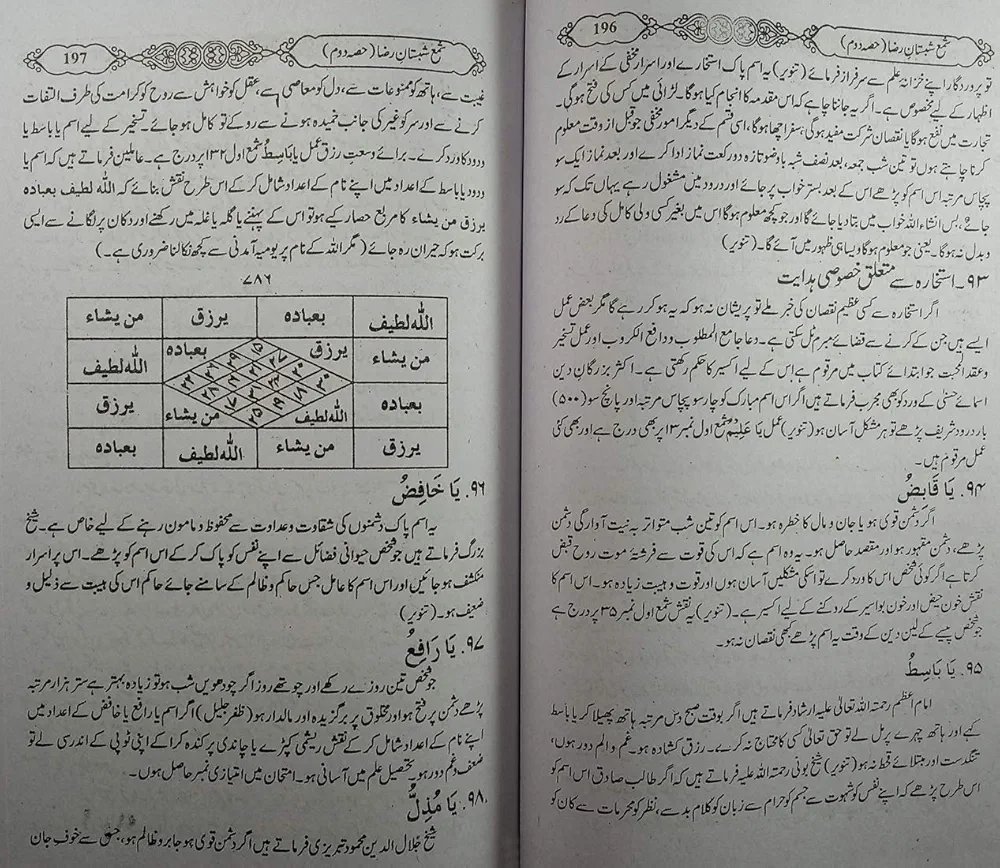 196
شمع شبستانِ رضا (حصہ دوم)
تو پروردگار اپنے خزانۂ علم سے سرفراز فرمائے (تنویر) یہ اسم پاک استخارے اور اسرار مخفی کے اسرار کے
اظہار کے لیے مخصوص ہے۔ اگر یہ جاننا چاہے کہ اس مقدمہ کا انجام کیا ہوگا۔ لڑائی میں کس کی فتح ہوگی۔
تجارت میں نفع ہوگا یا نقصان شرکت مفید ہوگی، سفر اچھا ہوگا، اسی قسم کے دیگر امور مخفی جو قبل از وقت معلوم
کرنا چاہتے ہوں تو تین شب جمعہ، بعد نصف شب با وضو تازہ دو رکعت نماز ادا کرے اور بعد نماز ایک سو
پچاس مرتبہ اس اسم کو پڑھے اس کے بعد بستر خواب پر جائے اور درود میں مشغول رہے یہاں تک کہ سو
جائے، بس انشاء اللہ خواب میں بتا دیا جائے گا اور جو کچھ معلوم ہوگا اس میں بغیر کسی ولی کامل کی دعا کے رد
و بدل نہ ہوگا۔ یعنی جو معلوم ہوگا ویسا ہی ظہور میں آئے گا۔ (تنویر)
۹۳۔ استخارہ سے متعلق خصوصی ہدایت
اگر استخارہ سے کسی عظیم نقصان کی خبر ملے تو پریشان نہ ہو کہ یہ ہو کر رہے گا مگر بعض عمل
ایسے ہیں جن کے کرنے سے قضائے مبرم ٹل سکتی ہے۔ دعا جامع المطلوب و دافع الکروب اور عمل تسخیر
و عقد المحبت جو ابتدائے کتاب میں مرقوم ہے اس کے لیے اکسیر کا حکم رکھتی ہے۔ اکثر بزرگانِ دین
اسمائے حسنیٰ کے ورد کو بھی مجرب فرماتے ہیں اگر اس اسم مبارک کو چار سو پچاس مرتبہ اور پانچ سو (۵۰۰)
بار درود شریف پڑھے تو ہر مشکل آسان ہو (تنویر) عمل یَا عَلِیْمُ شمع اول نمبر ۳۱ پر بھی درج ہے اور بھی کئی
عمل مرقوم ہیں۔
۹۴. یَا قَابِضُ
اگر دشمن قوی ہو یا جان و مال کا خطرہ ہو۔ اس اسم کو تین شب متواتر بہ نیت آوارگی دشمن
پڑھے، دشمن مقہور ہو اور مقصد حاصل ہو۔ یہ وہ اسم ہے کہ اس کی قوت سے فرشتۂ موت روح قبض
کرتا ہے اگر کوئی شخص اس کا ورد کرے تو اسکی مشکلیں آسان ہوں اور قوت و ہیبت زیادہ ہو۔ اس اسم کا
نقش خون حیض اور خون بواسیر کے روکنے کے لیے اکسیر ہے۔ (تنویر) یہ نقش شمع اول نمبر ۳۵ پر درج ہے
جو شخص پیسے کے لین دین کے وقت یہ اسم پڑھے کبھی نقصان نہ ہو۔
۹۵. یَا بَاسِطُ
امام اعظم رحمۃ اللہ تعالیٰ علیہ ارشاد فرماتے ہیں اگر بوقت صبح دس مرتبہ ہاتھ پھیلا کر یا باسط
کہے اور ہاتھ چہرے پر مل لے تو حق تعالیٰ کسی کا محتاج نہ کرے۔ رزق کشادہ ہو۔ غم و الم دور ہوں،
تنگدست اور مبتلائے قحط نہ ہو (تنویر) شیخ بونی رحمۃ اللہ علیہ فرماتے ہیں کہ اگر طالب صادق اس اسم کو
اس طرح پڑھے کہ اپنے نفس کو شہوت سے جسم کو حرام سے زبان کو کلام بد سے، نظر کو محرمات سے کان کو
197
شمع شبستانِ رضا (حصہ دوم)
غیبت سے، ہاتھ کو ممنوعات سے، دل کو معاصی سے، عقل کو خواہش سے روح کو کرامت کی طرف التفات
کرنے سے اور سر کو غیر کی جانب خمیدہ ہونے سے روکے تو کامل ہو جائے۔ تسخیر کے لیے اسم یا باسط یا
ودود کا ورد کرے۔ برائے وسعتِ رزق عمل یا باسِطُ شمع اول ۱۳۲ پر درج ہے۔ عاملین فرماتے ہیں کہ اسم یا
ودود یا باسط کے اعداد میں اپنے نام کے اعداد شامل کر کے اس طرح نقش بنائے کہ اللہ لطیف بعبادہ
یرزق من یشاء کا مربع حصار کیے ہو تو اس کے پہننے یا گلہ یا غلہ میں رکھنے اور دکان پر لگانے سے ایسی
برکت ہو کہ حیران رہ جائے (مگر اللہ کے نام پر یومیہ آمدنی سے کچھ نکالنا ضروری ہے۔)
۷۸۶
اللہ لطیف بعبادہ یرزق من یشاء
من یشاء یرزق بعبادہ اللہ لطیف
بعبادہ اللہ لطیف من یشاء یرزق
یرزق من یشاء اللہ لطیف بعبادہ
۹۶. یَا خَافِضُ
یہ اسم پاک دشمنوں کی شقاوت و عداوت سے محفوظ و مامون رہنے کے لیے خاص ہے۔ شیخ
بزرگ فرماتے ہیں جو شخص حیوانی فضائل سے اپنے نفس کو پاک کر کے اس اسم کو پڑھے۔ اس پر اسرار
منکشف ہو جائیں اور اس اسم کا عامل جس حاکم و ظالم کے سامنے جائے حاکم اس کی ہیبت سے ذلیل و
ضعیف ہو۔ (تنویر)
۹۷. یَا رَافِعُ
جو شخص تین روزے رکھے اور چوتھے روز اگر چودھویں شب ہو تو زیادہ بہتر ہے ستر ہزار مرتبہ
پڑھے دشمن پر فتح ہو اور مخلوق پر برگزیدہ اور مالدار ہو (ظفر جلیل) اگر اسم یا رافع یا خافض کے اعداد میں
اپنے نام کے اعداد شامل کر کے نقش ریشمی کپڑے یا چاندی پر کندہ کرا کے اپنی ٹوپی کے اندر سی لے تو
ضعف دغم دور ہو۔ تحصیل علم میں آسانی ہو۔ امتحان میں امتیازی نمبر حاصل ہوں۔
۹۸. یَا مُذِلُّ
شیخ جلال الدین محمود تبریزی فرماتے ہیں اگر دشمن قوی ہو جابر و ظالم ہو، جس سے خوفِ جان